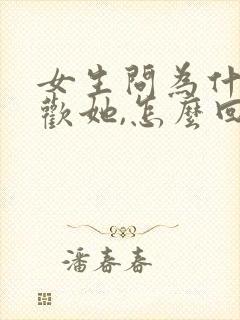 女生問為什
歡她,怎麼回
潘春春